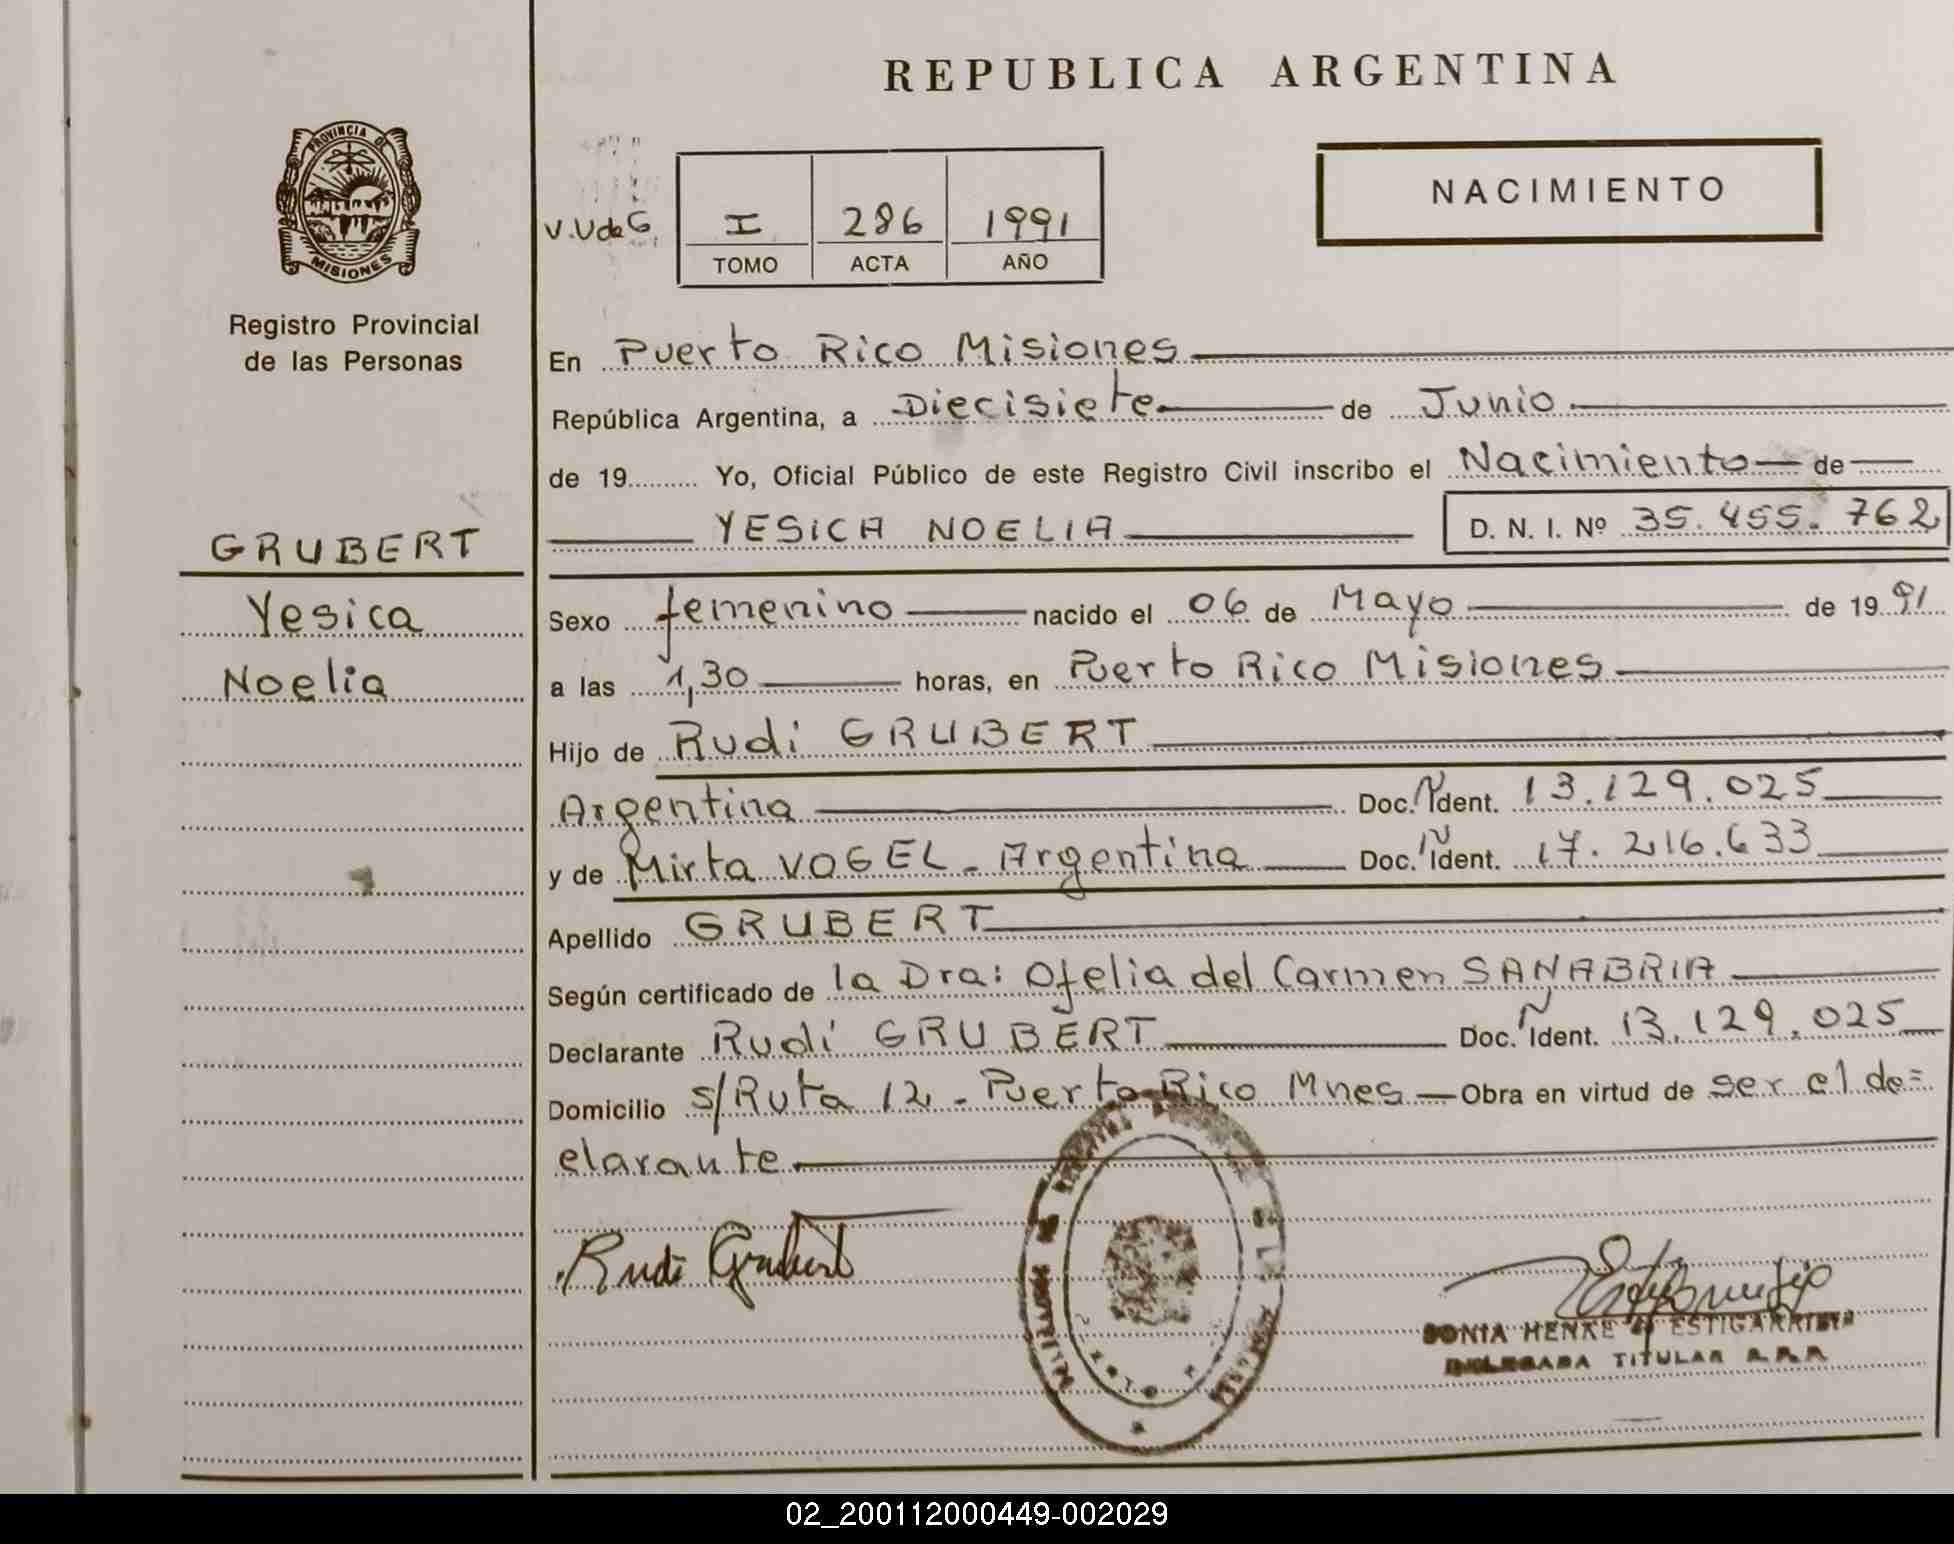 REPUBLICA ARGENTINA
PROVINCIA DE
MISIONES
Registro Provincial
de las Personas
NACIMIENTO
V.V de G.
I 286 1991
TOMO ACTA AÑO
En Puerto Rico Misiones
República Argentina, a Diecisiete de Junio
de 19 Yo, Oficial Público de este Registro Civil inscribo el Nacimiento de
YESICA NOELIA D. N. I. Nº 35.455.762
GRUBERT
Yesica
Noelia
Sexo femenino nacido el 06 de Mayo de 1991
a las 1,30 horas, en Puerto Rico Misiones
Hijo de Rudi GRUBERT
Argentina Doc. Ident. 13.129.025
y de Mirta VOGEL - Argentina Doc. Ident. 17.216.633
Apellido GRUBERT
Según certificado de la Dra: Ofelia del Carmen SANABRIA
Declarante Rudi GRUBERT Doc. Ident. 13.129.025
Domicilio s/Ruta 12 - Puerto Rico Mnes - Obra en virtud de ser el de=
clarante
Rudi Grubert
SONIA HENKE de ESTIGARRIBIA
DELEGADA TITULAR
02_200112000449-002029